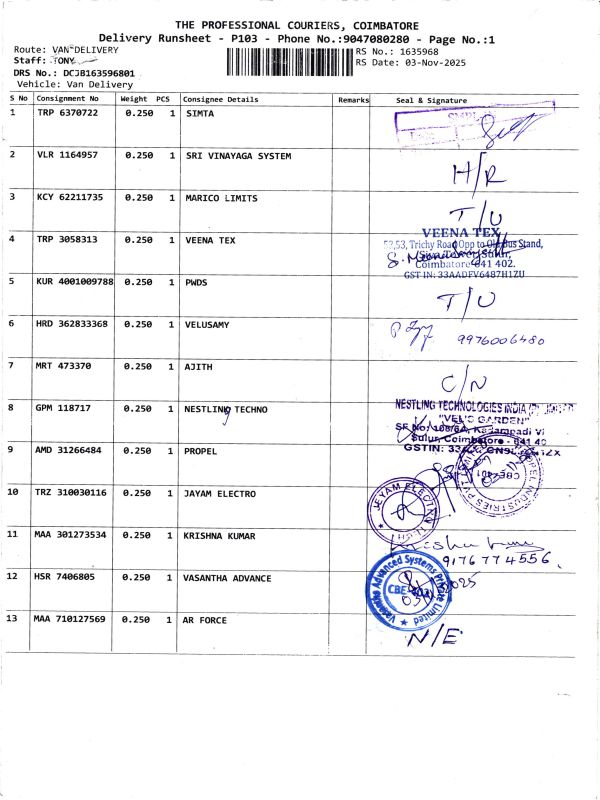 THE PROFESSIONAL COURIERS, COIMBATORE
Delivery Runsheet - P103 - Phone No.:9047080280 - Page No.:1
Route: VAN DELIVERY
RS No.: 1635968
Staff: TONY
RS Date: 03-Nov-2025
DRS No.: DCJB163596801
Vehicle: Van Delivery
S No Consignment No Weight PCS Consignee Details Remarks Seal & Signature
1 TRP 6370722 0.250 1 SIMTA
2 VLR 1164957 0.250 1 SRI VINAYAGA SYSTEM H/R
3 KCY 62211735 0.250 1 MARICO LIMITS T/U
4 TRP 3058313 0.250 1 VEENA TEX
VEENA TEX
52,53, Trichy Road Opp to Old Bus Stand,
Sulur,
Coimbatore-641 402.
GST IN: 33AADFV6487H1ZU
5 KUR 4001009788 0.250 1 PWDS T/U
6 HRD 362833368 0.250 1 VELUSAMY 9976006480
7 MRT 473370 0.250 1 AJITH C/N
8 GPM 118717 0.250 1 NESTLING TECHNO
NESTLING TECHNOLOGIES INDIA
"VEL'S GARDEN"
SF No: 108/6A, Kadampadi
Sulur, Coimbatore - 641
GSTIN:
9 AMD 31266484 0.250 1 PROPEL
PROPEL INDUSTRIES
10 TRZ 310030116 0.250 1 JAYAM ELECTRO
JEYAM ELECTRO
11 MAA 301273534 0.250 1 KRISHNA KUMAR
Krishna Kumar
9176774556.
12 HSR 7406805 0.250 1 VASANTHA ADVANCE
Vasantha Advanced Systems Private Limited
CBE
13 MAA 710127569 0.250 1 AR FORCE N/E